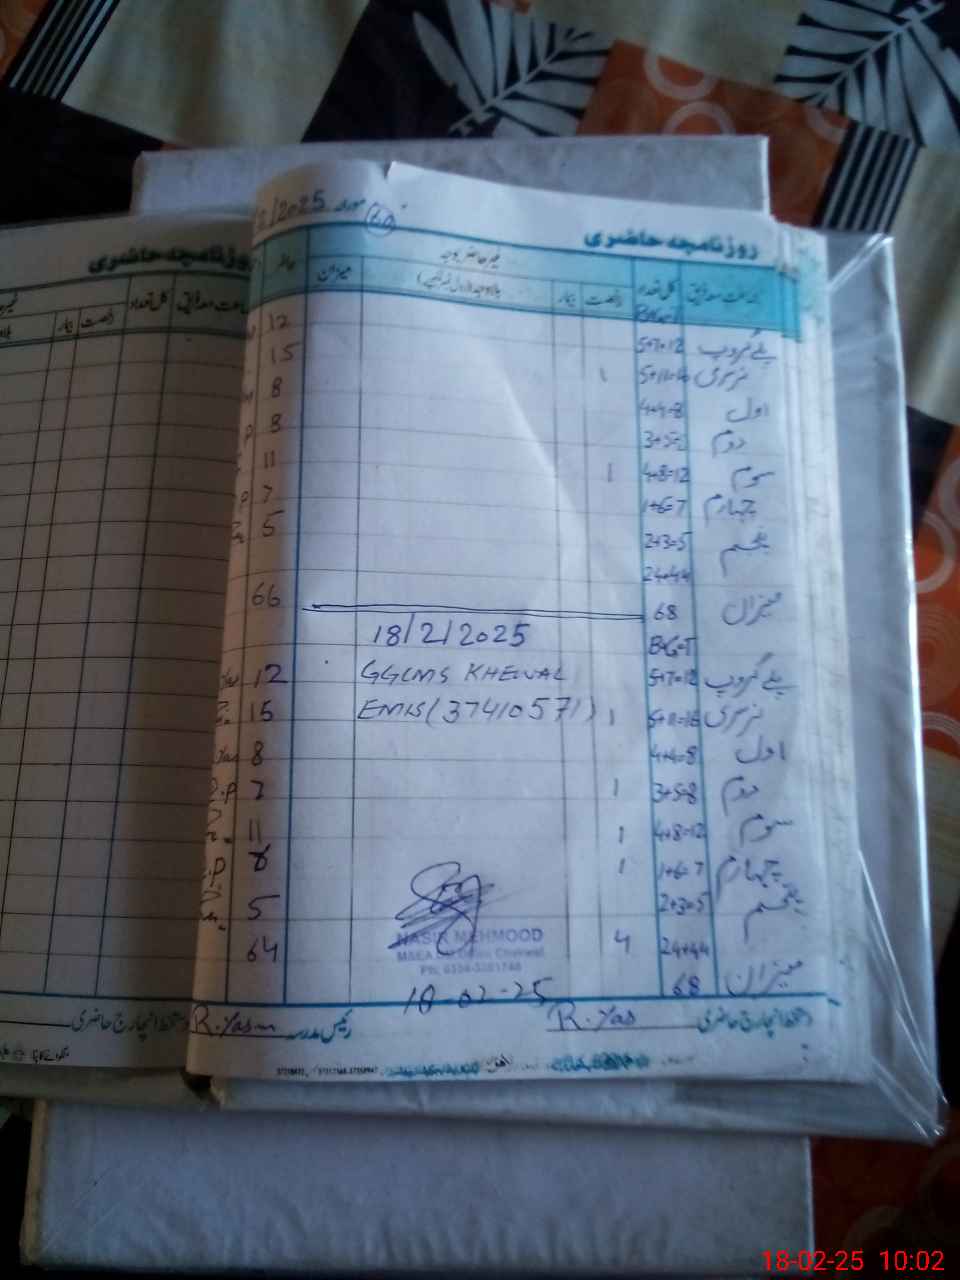 /2/2025 مورخہ
روزنامچہ حاضری
نام جماعت معہ فریق کل تعداد رخصت بیمار غیر حاضر بوجہ میزان حاضر
بلاوجہ (رول نمبر لکھیے)
پلے گروپ 5+7=12 12
نرسری 5+11=16 1 15
اول 4+4=8 8
دوم 3+5=8 8
سوم 4+8=12 1 11
چہارم 1+6=7 7
پنجم 2+3=5 5
24+44
میزان 68 66
18/2/2025
B+G=T
پلے گروپ 5+7=12 GGCMS KHEWAL 12
نرسری 5+11=16 1 EMIS(37410571) 15
اول 4+4=8 8
دوم 3+5=8 1 7
سوم 4+8=12 1 11
چہارم 1+6=7 1
پنجم 2+3=5 5
24+44 4 64
میزان 68
NASIR MEHMOOD
18-02-25
دستخط انچارج حاضری R.Yas رئیس مدرسہ R.Yasm
روزنامچہ حاضری
جماعت معہ فریق کل تعداد رخصت بیمار
دستخط انچارج حاضری
18-02-25 10:02